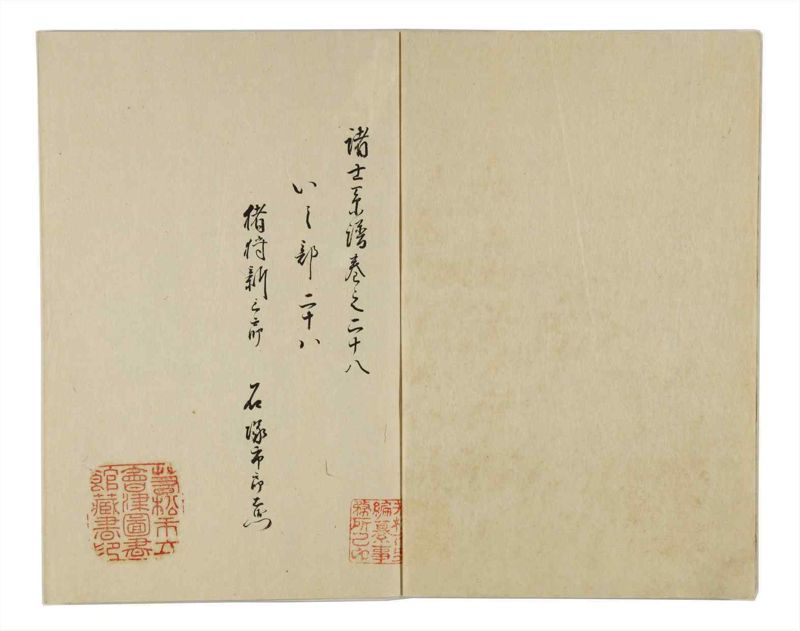 諸士系譜巻之二十八
い之部二十八
猪狩新三郎 石塚市郎右衛門
若松市立
會津圖書
館藏書印
編纂事
務所